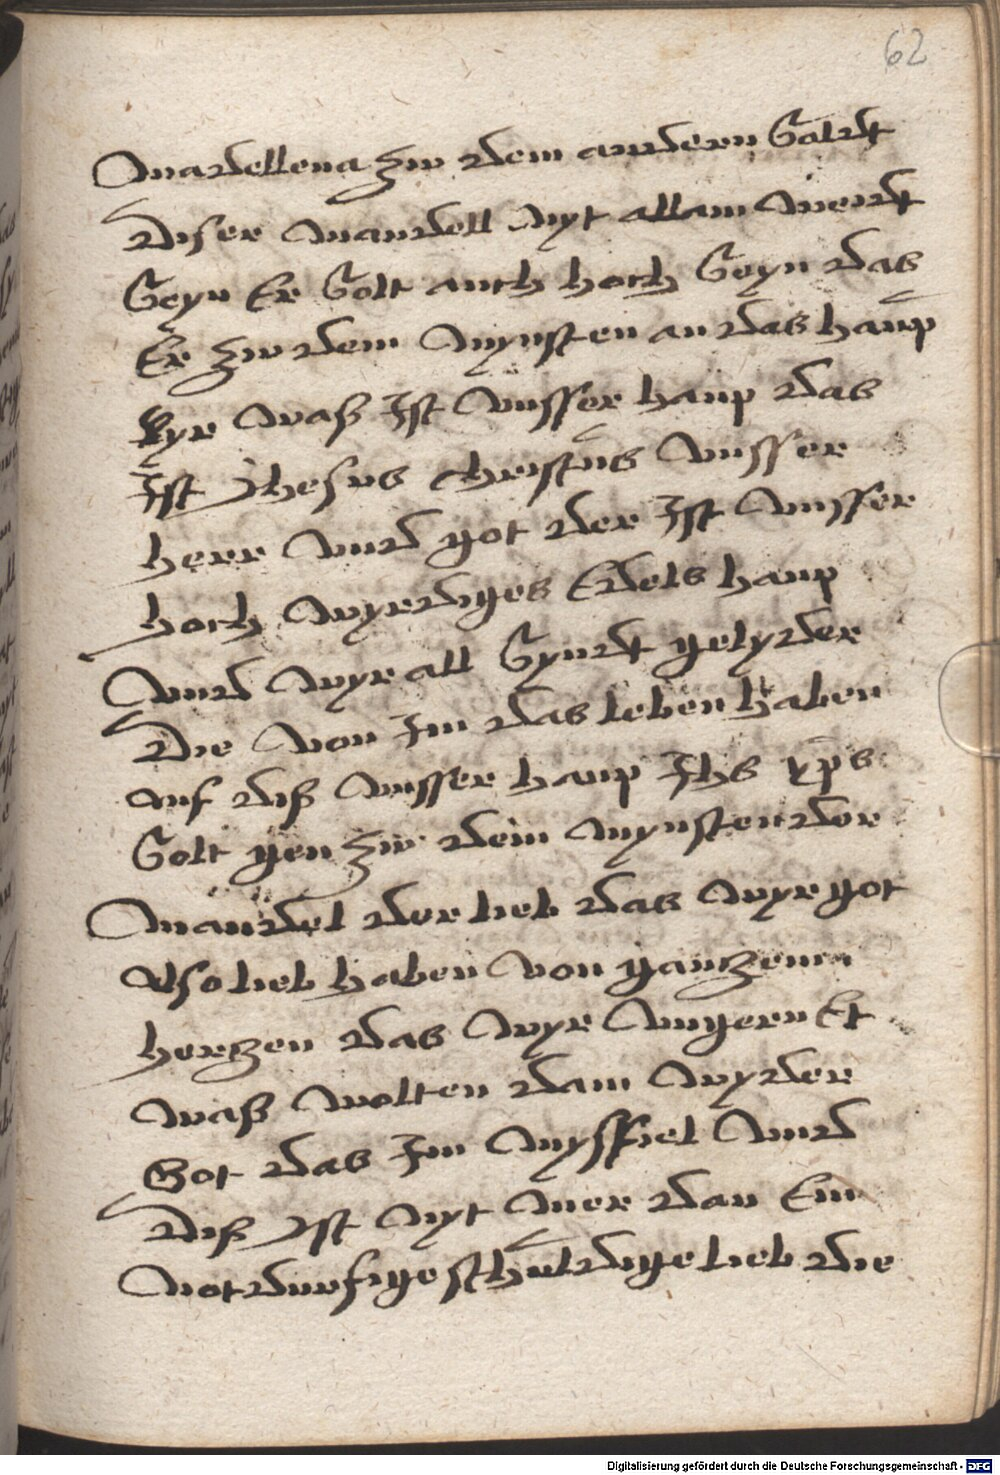 62
Mardellena zw dem andern Soldt
Diser mandell nyt allam wendt
Seyn Er Solt auch hoch Seyn das
Er zw dem mynsten an das haup
Ryr waß Ist vnsser haup das
Ist Jhesus christus vnsser
herr vnd got der Ist vnsser
hoch wyrdiges Edels haup
vnd wyr all Syndt gelyder
Die von Im das leben haben
auf diß vnsser haup Jhs xps
Solt gen zw dem mynsten der
mandel der lieb das wyr got
Also lieb haben von gantzem
hertzen das wyr vngern Et
waß wolten dam wyder
Got das Im myssfiel vnd
Diß Ist nyt mer dan Ein
notdurfige schuldige lieb die
Digitalisierung gefördert durch die Deutsche Forschungsgemeinschaft - DFG